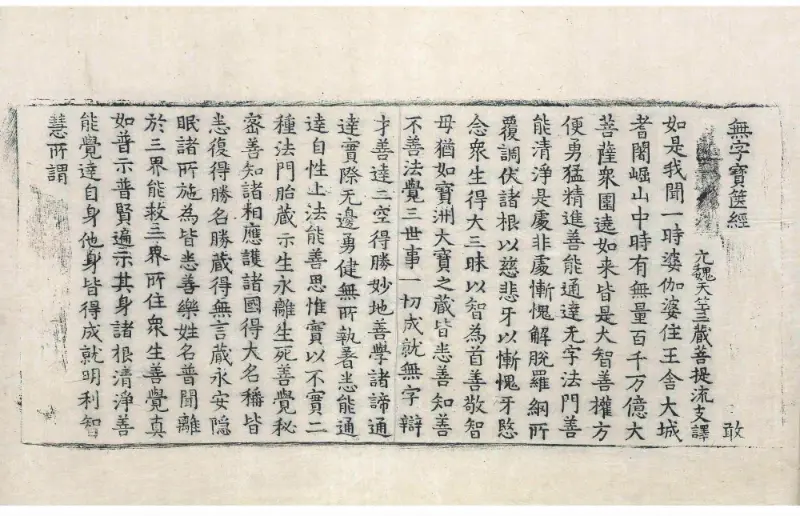 無字寶篋經 敢
元魏天竺三蔵菩提流支譯
如是我聞一時婆伽婆住王舍大城
耆闍崛山中時有無量百千万億大
菩薩衆圍遶如来皆是大智善權方
便勇猛精進善能通達无字法門善
能清淨是處非處慚愧解脫羅網所
覆調伏諸根以慈悲牙以慚愧牙愍
念衆生得大三昧以智為首善敬智
母猶如寶洲大寶之蔵皆悉善知善
不善法覺三世事一切成就無字辯
才善達二空得勝妙地善學諸諦通
達實際无邊勇健無所執著悉能通
達自性上法能善思惟實以不實二
種法門胎蔵示生永離生死善覺秘
密善知諸相應護諸國得大名稱皆
悉復得勝名勝蔵得無言蔵永安隠
眠諸所施為皆悉善樂姓名普聞離
於三界能救三界所住衆生善覺真
如普示普賢遍示其身諸根清淨善
能覺達自身他身皆得成就明利智
慧所謂